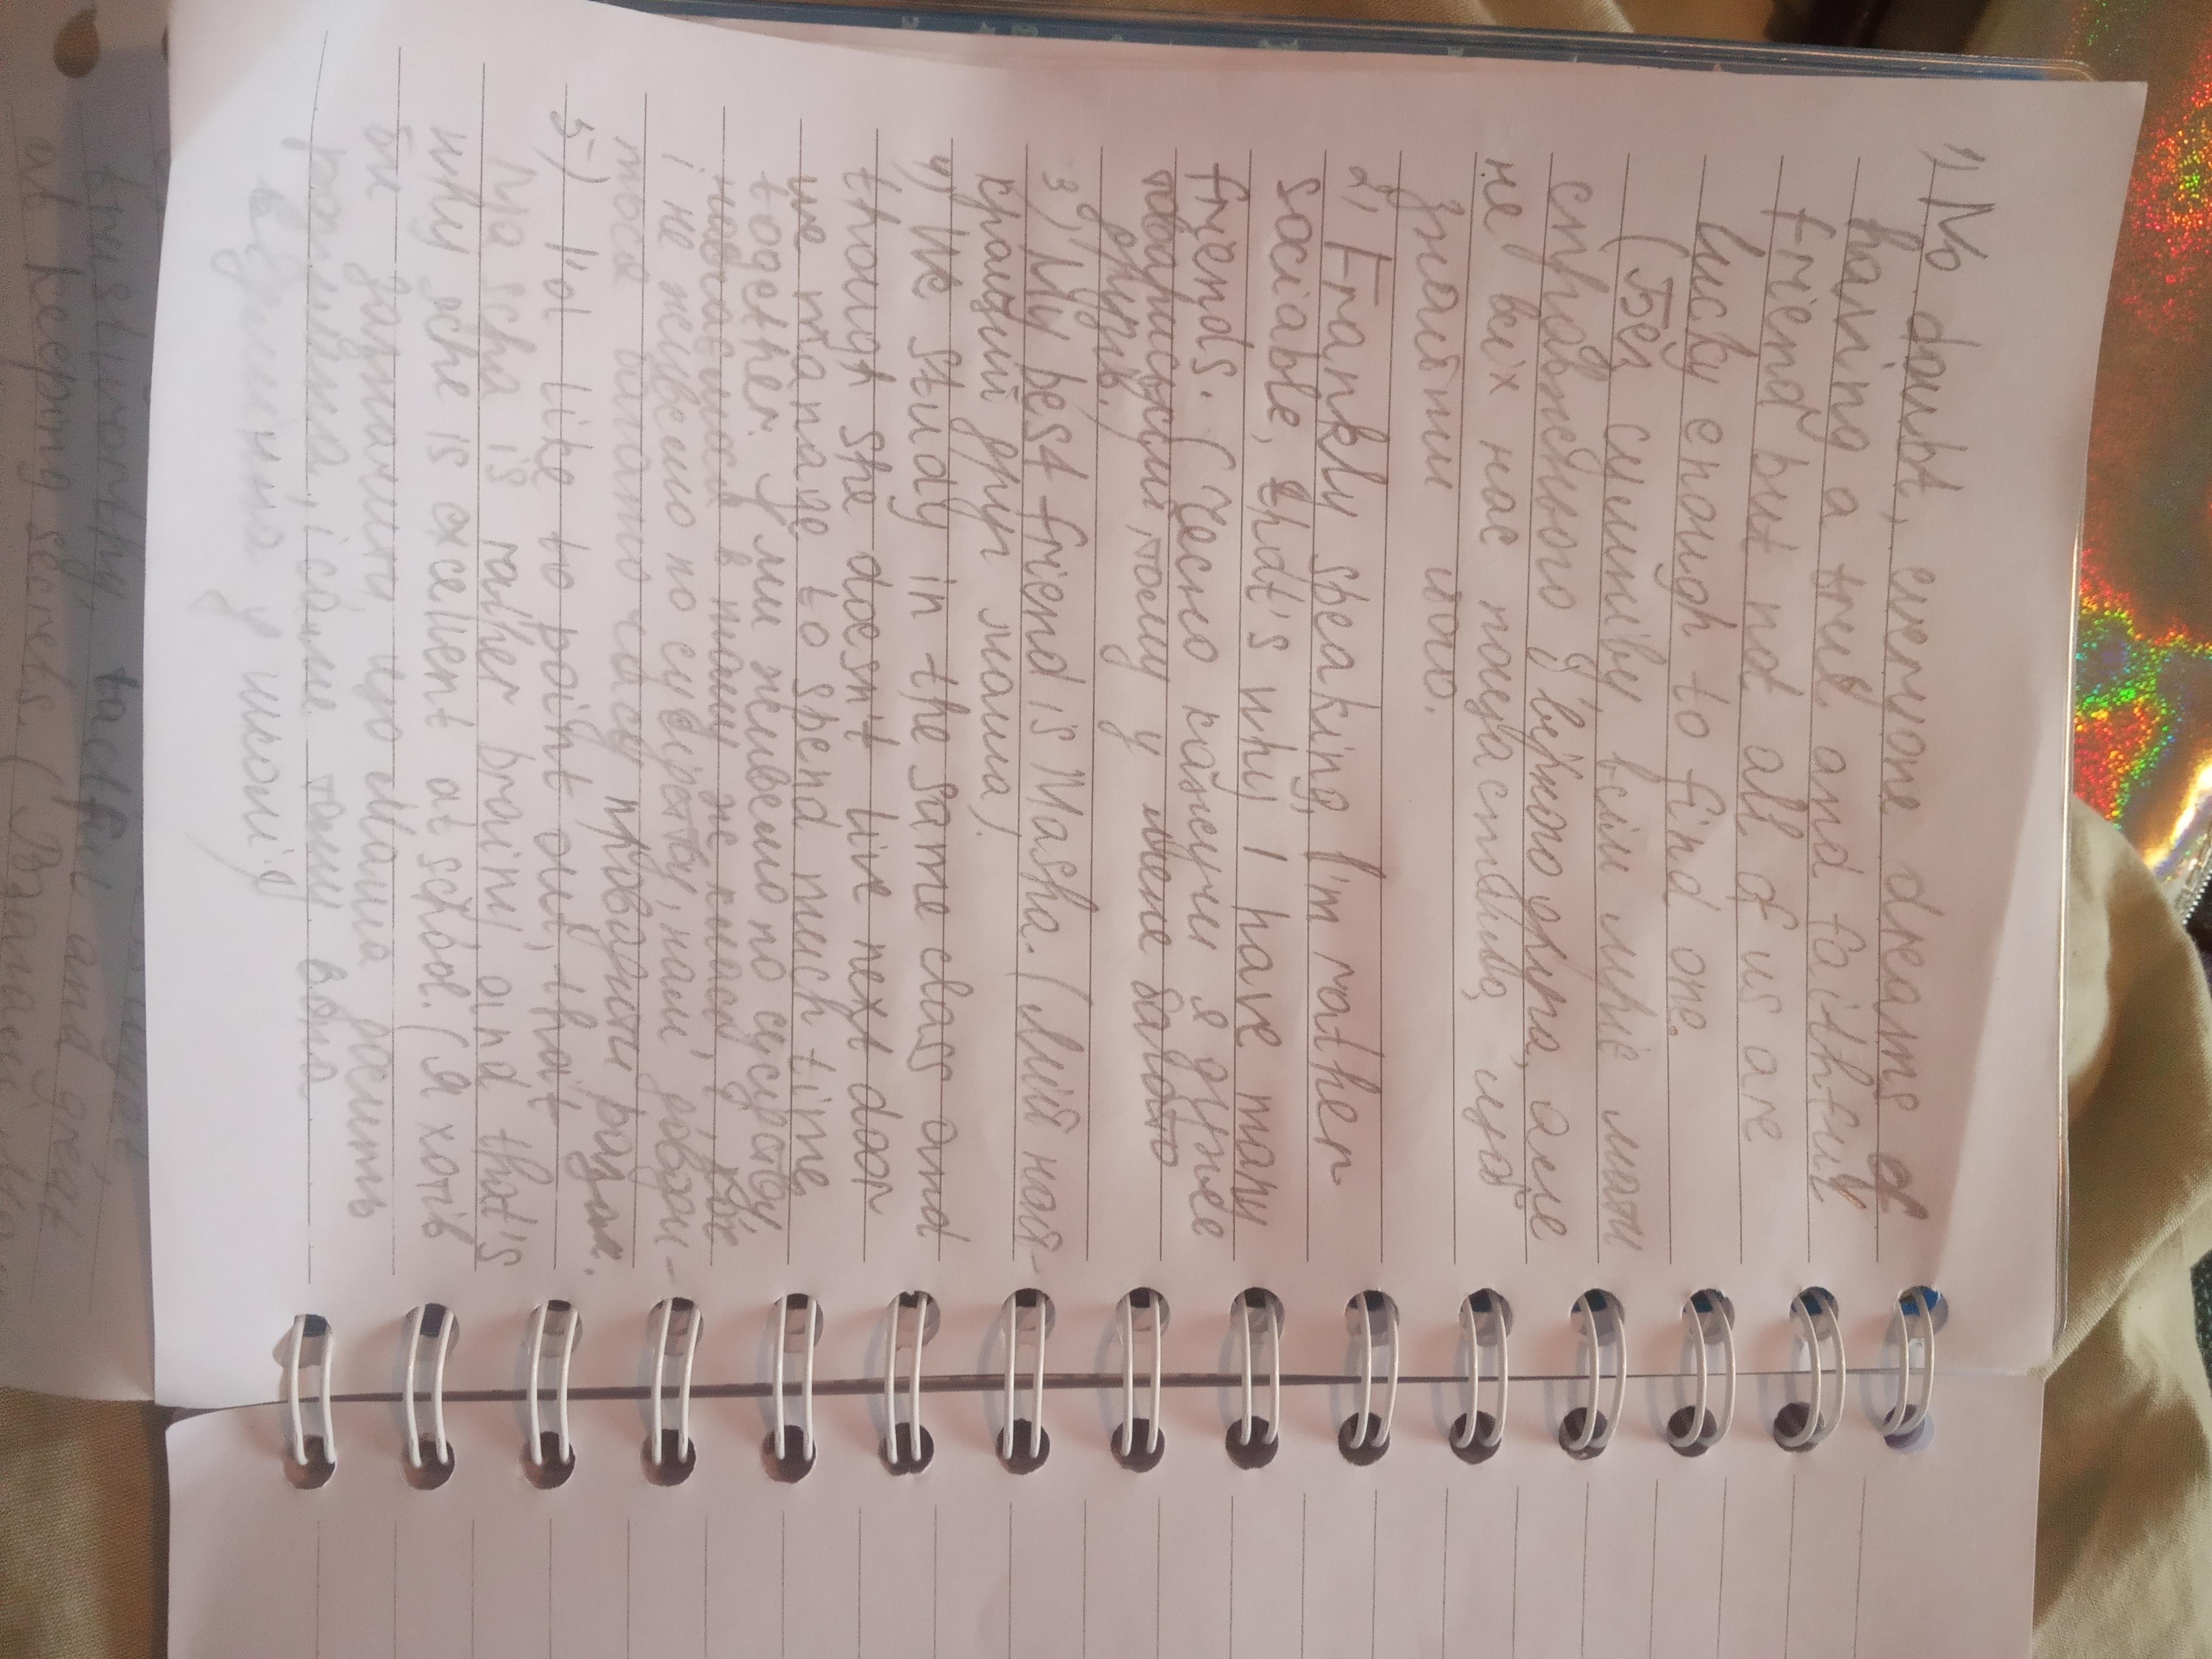 1) No doubt, everyone dreams of
having a true and faithful
friend but not all of us are
lucky enough to find one.
(Без сумніву, всім мріє мати
справжнього й вірного друга, але
не всіх нас пощастило, щоб
знайти його.
2) Frankly speaking, I'm rather
sociable, that's why I have many
friends. (Чесно кажучи я дуже
товариський, тому у мене багато
друзів.
3) My best friend is Masha. (Мій ная-
кращий друг Маша).
4) We study in the same class and
though she doesn't live next door
we manage to spend much time
together. У ми живемо по сусідству
навчаємося в тому ж класі, хоч
і не живемо по сусідству, нам вдаєть-
тося багато часу проводити разом.
5) I'd like to point out, that
Masha is rather brainy and that's
why she is excellent at school. (Я хотів
би зазначити що Маша досить
розумна, і саме тому вона
відмінна у школі)
trustworthy, tactful and great
at keeping secrets.